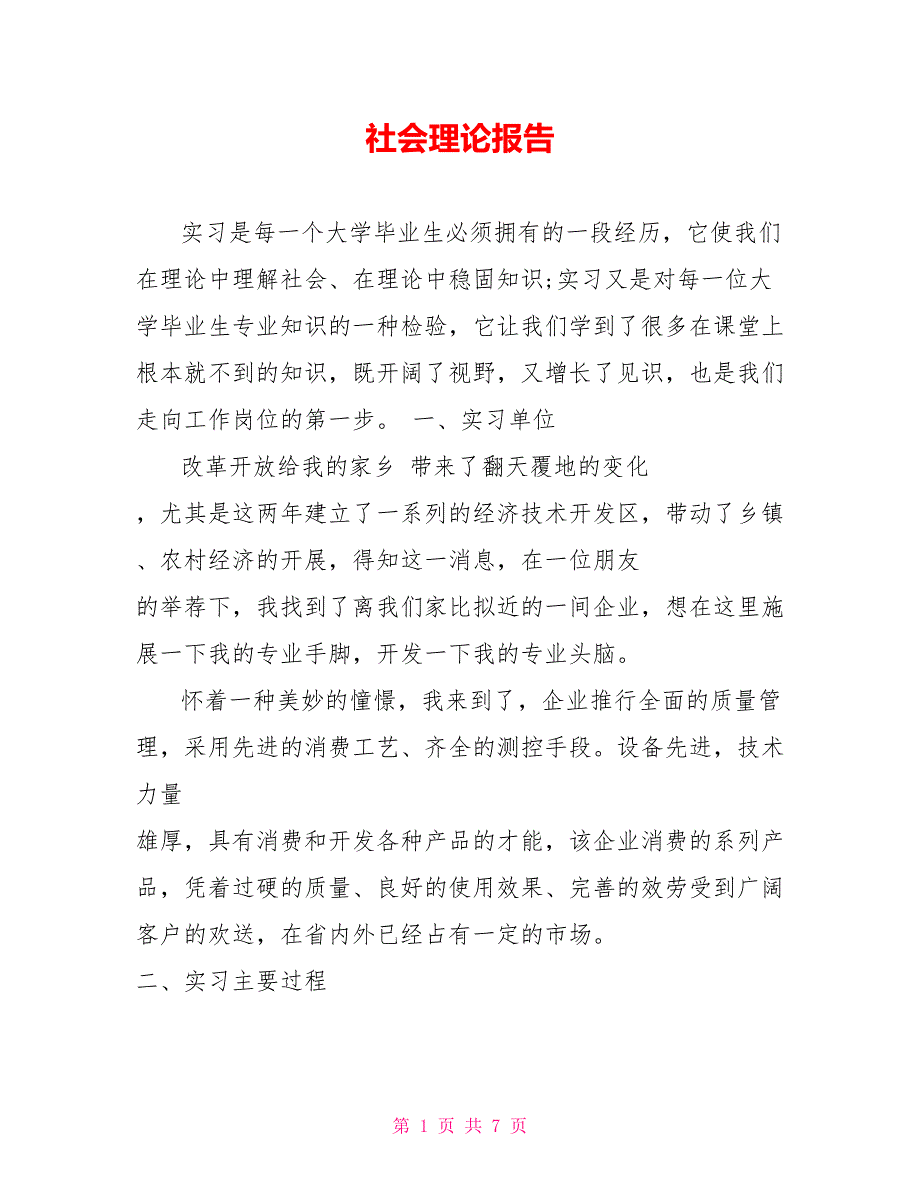 社会理论报告
实习是每一个大学毕业生必须拥有的一段经历，它使我们
在理论中理解社会、在理论中稳固知识;实习又是对每一位大
学毕业生专业知识的一种检验，它让我们学到了很多在课堂上
根本就不到的知识，既开阔了视野，又增长了见识，也是我们
走向工作岗位的第一步。 一、实习单位
改革开放给我的家乡 带来了翻天覆地的变化
，尤其是这两年建立了一系列的经济技术开发区，带动了乡镇
、农村经济的开展，得知这一消息，在一位朋友
的举荐下，我找到了离我们家比拟近的一间企业，想在这里施
展一下我的专业手脚，开发一下我的专业头脑。
怀着一种美妙的憧憬，我来到了，企业推行全面的质量管
理，采用先进的消费工艺、齐全的测控手段。设备先进，技术
力量
雄厚，具有消费和开发各种产品的才能，该企业消费的系列产
品，凭着过硬的质量、良好的使用效果、完善的效劳受到广阔
客户的欢送，在省内外已经占有一定的市场。
二、实习主要过程
第 1 页 共 7 页